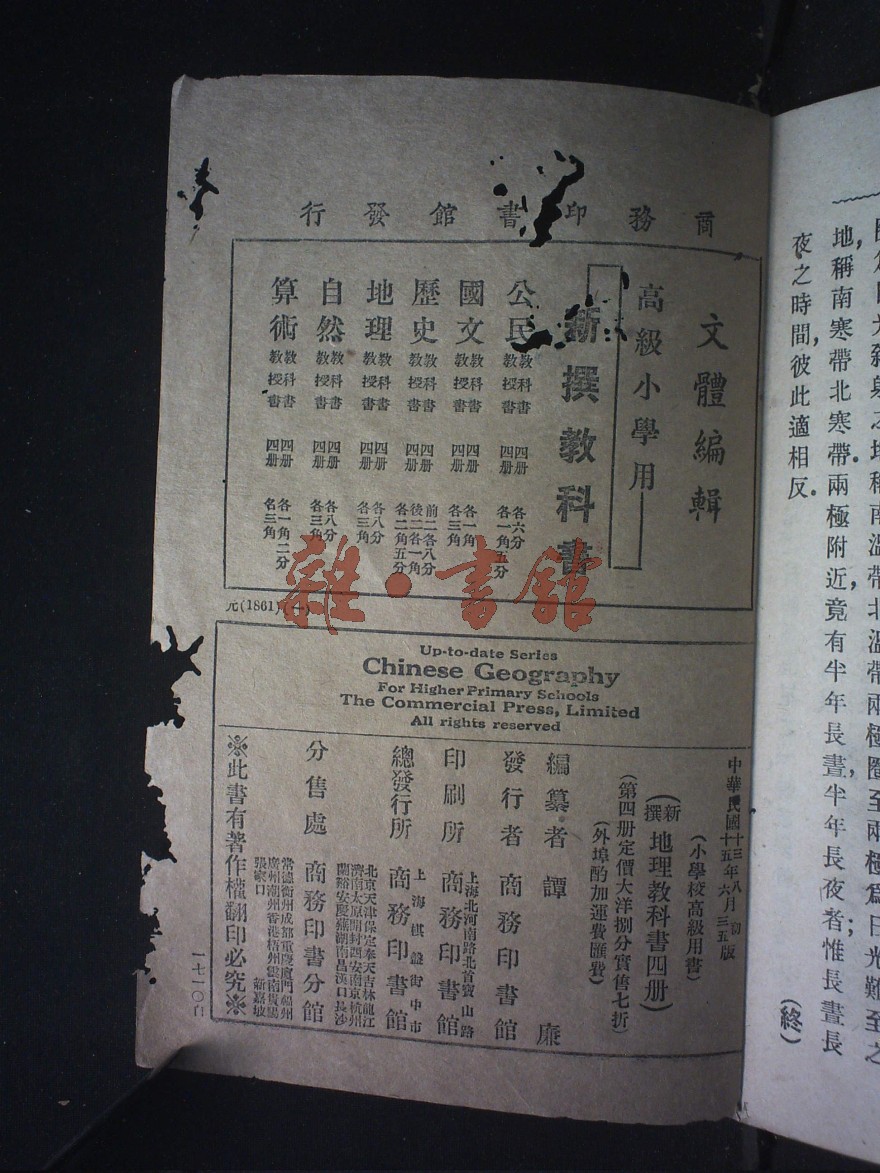 商務印書館發行
文體編輯
高級小學用
新撰教科書
公民 教科書 四册 各六分
教授書 四册 各一角五分
國文 教科書 四册 各一角
教授書 四册 各三角
歷史 教科書 四册 前二各八分 後二各一角
教授書 四册 各二角五分
地理 教科書 四册 各八分
教授書 四册 各三角
自然 教科書 四册 各八分
教授書 四册 各三角
算術 教科書 四册 各一角二分
教授書 四册 各三角
元(1861)
雜·書館
Up-to-date Series
Chinese Geography
For Higher Primary Schools
The Commercial Press, Limited
All rights reserved
中華民國十三年八月初版
十五年六月三五版
(小學校高級用書)
(新撰)地理教科書四册)
(第四册定價大洋捌分實售七折)
(外埠酌加運費匯費)
編纂者 譚 廉
發行者 商務印書館
印刷所 上海北河南路北首寶山路 商務印書館
總發行所 上海棋盤街中市 商務印書館
分售處 商務印書分館
北京天津保定奉天吉林龍江
濟南太原開封西安南京杭州
蘭谿安慶蕪湖南昌漢口長沙
常德衡州成都重慶廈門福州
廣州潮州香港梧州雲南貴陽
張家口 新嘉坡
※此書有著作權翻印必究※
一七一〇自
地稱南寒帶北寒帶兩極附近,竟有半年長晝,半年長夜者;惟長晝長
夜之時間,彼此適相反.
(終)